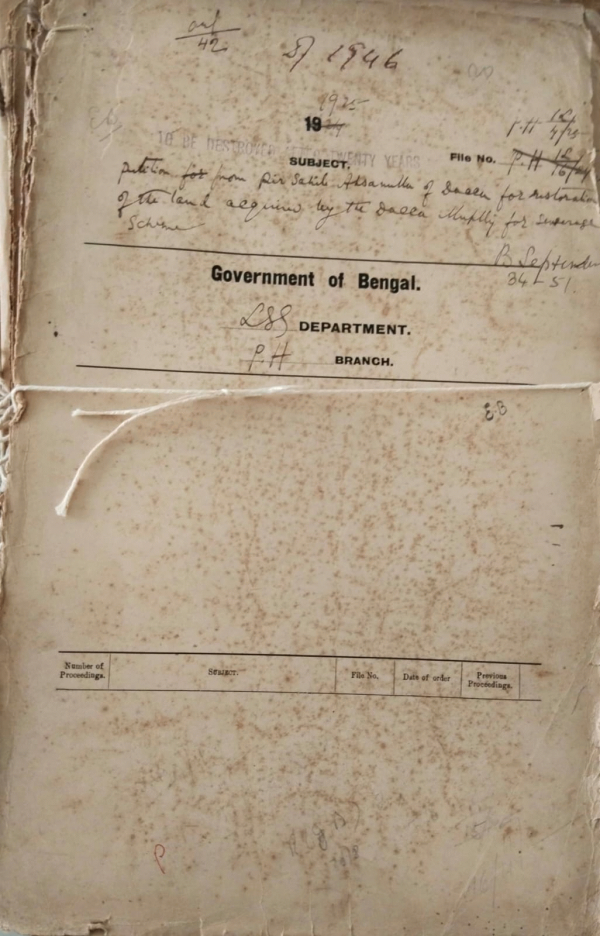 42
D/ 1946
1925
1924
TO BE DESTROYED AFTER TWENTY YEARS
SUBJECT.
File No.
P.H
petition for from Pir Sahib Ahsanulla of Dacca for restoration
of the land acquired by the Dacca Muplty for Sewerage
Scheme
B September
34 – 51.
Government of Bengal.
LSG DEPARTMENT.
P.H BRANCH.
Number of Proceedings.
SUBJECT.
File No.
Date of order
Previous Proceedings.